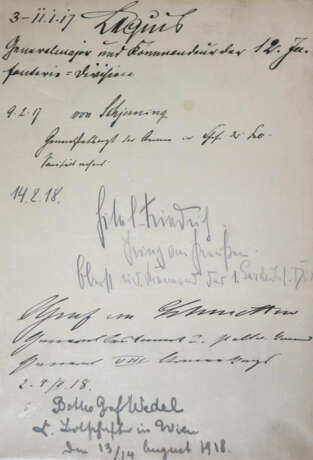 3-11.1.17 Lequis
Generalmajor und Kommandeur der 12. In-
fanterie-Division
9.2.17 von Schjerning
Generalstabsarzt der Armee u Chef des
Sanitäts
14.2.18.
Eitel-Friedrich
Prinz von Preußen.
Oberst und Kommand. der 1. Garde
Graf von Schmettow
Generalleutnant
General VIII Armee
2.
Botho Graf Wedel
k. Botschafter in Wien
den 13/14 August 1918.